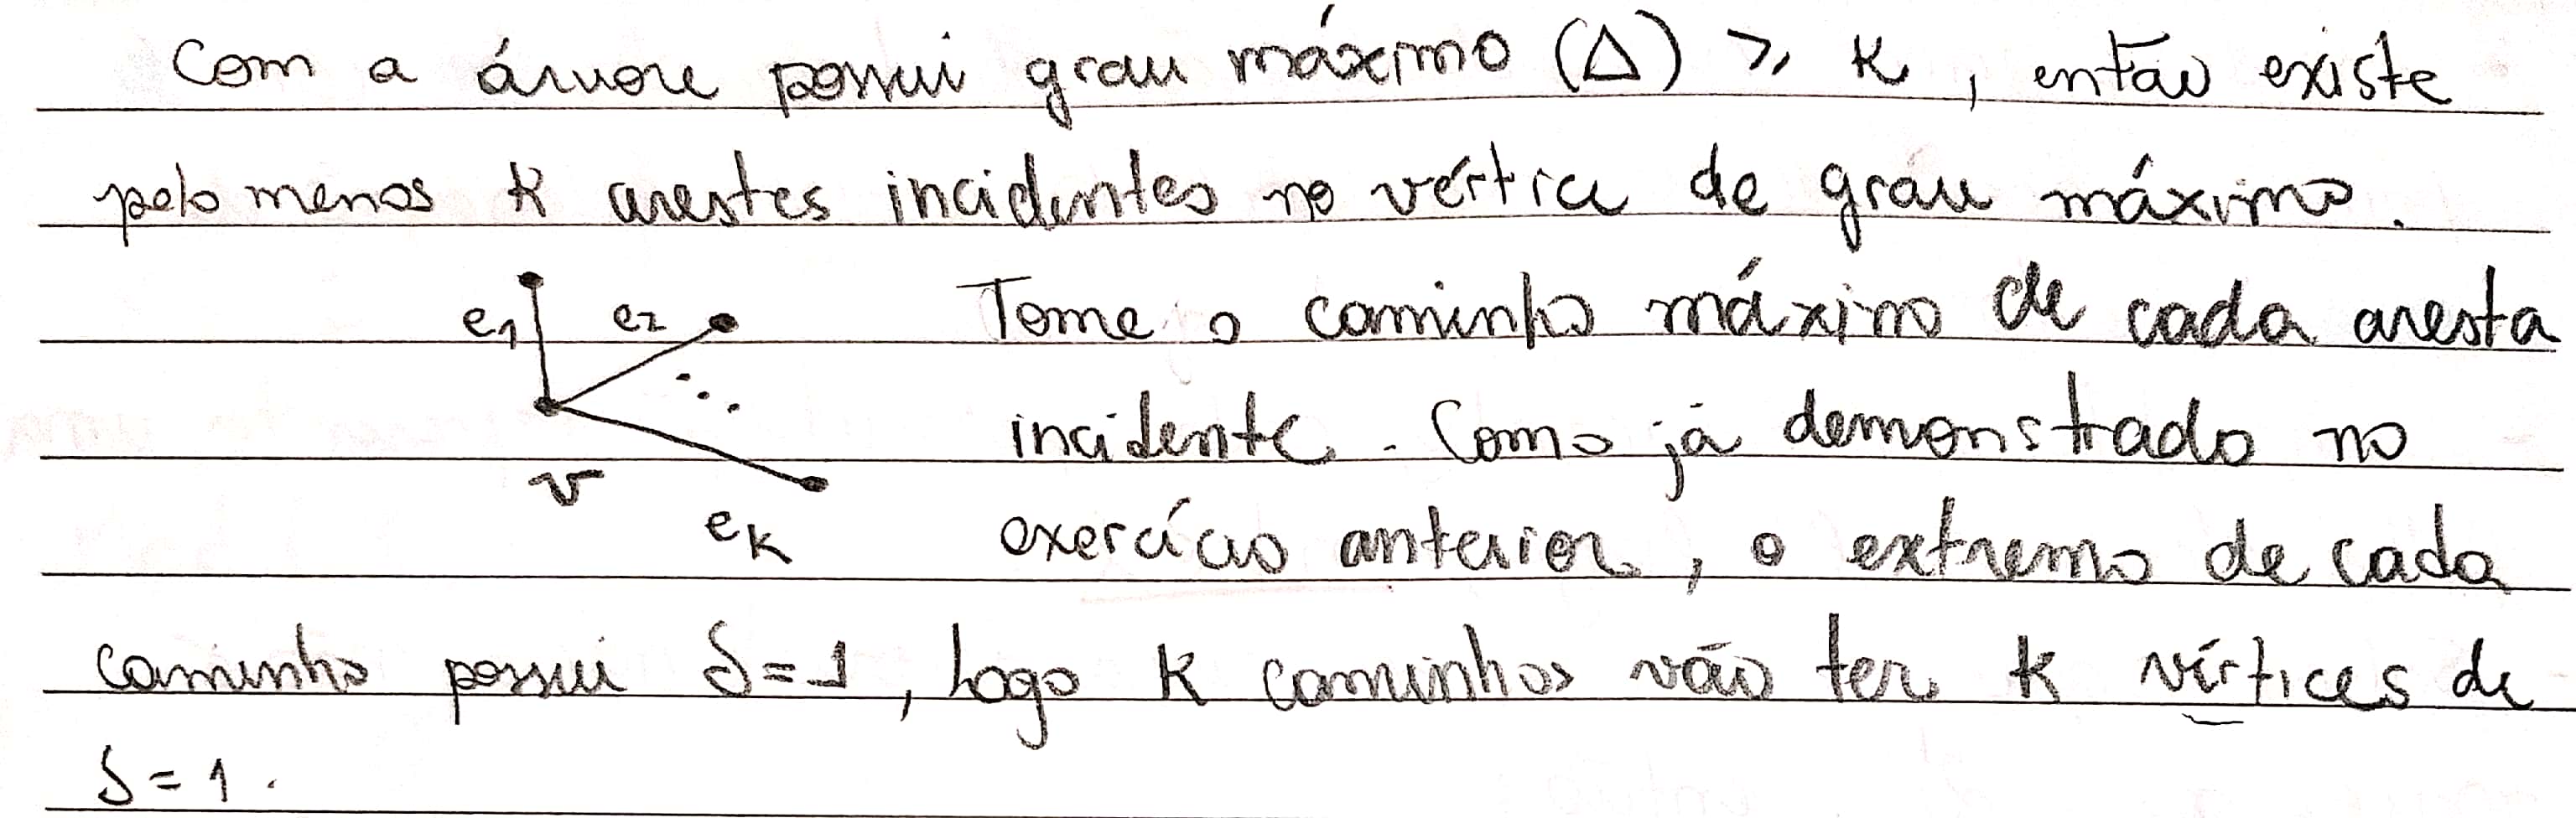 Com a árvore possui grau máximo (Δ) ⩾ K, então existe
pelo menos K arestes incidentes no vértice de grau máximo.
e1 e2 Tome o caminho máximo de cada aresta
incidente. Como já demonstrado no
v
eK exercício anterior, o extremo de cada
caminho possui δ=1, logo K caminhos vão ter K vértices de
δ=1.